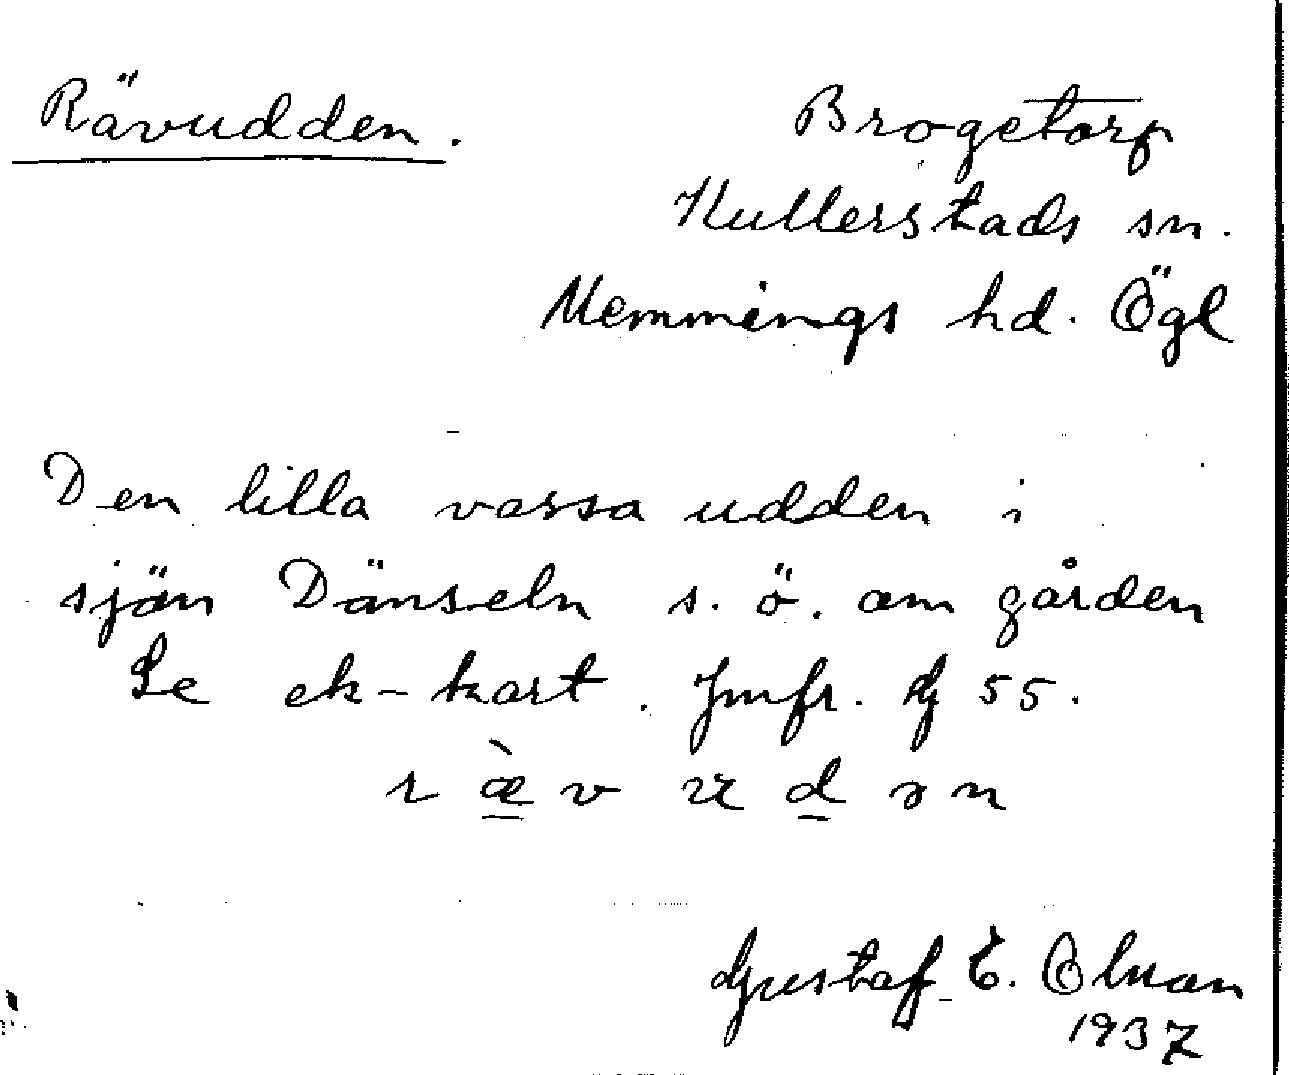 Rävudden.
Brogetorp
Kullerstads sn.
Memmings hd. Ögl
Den lilla vassa udden i
sjön Dänseln s. ö. om gården
Se ek-kart. Jmfr. G 55.
r æ̀ v ɷ d ə n
Gustaf E. Olman
1937